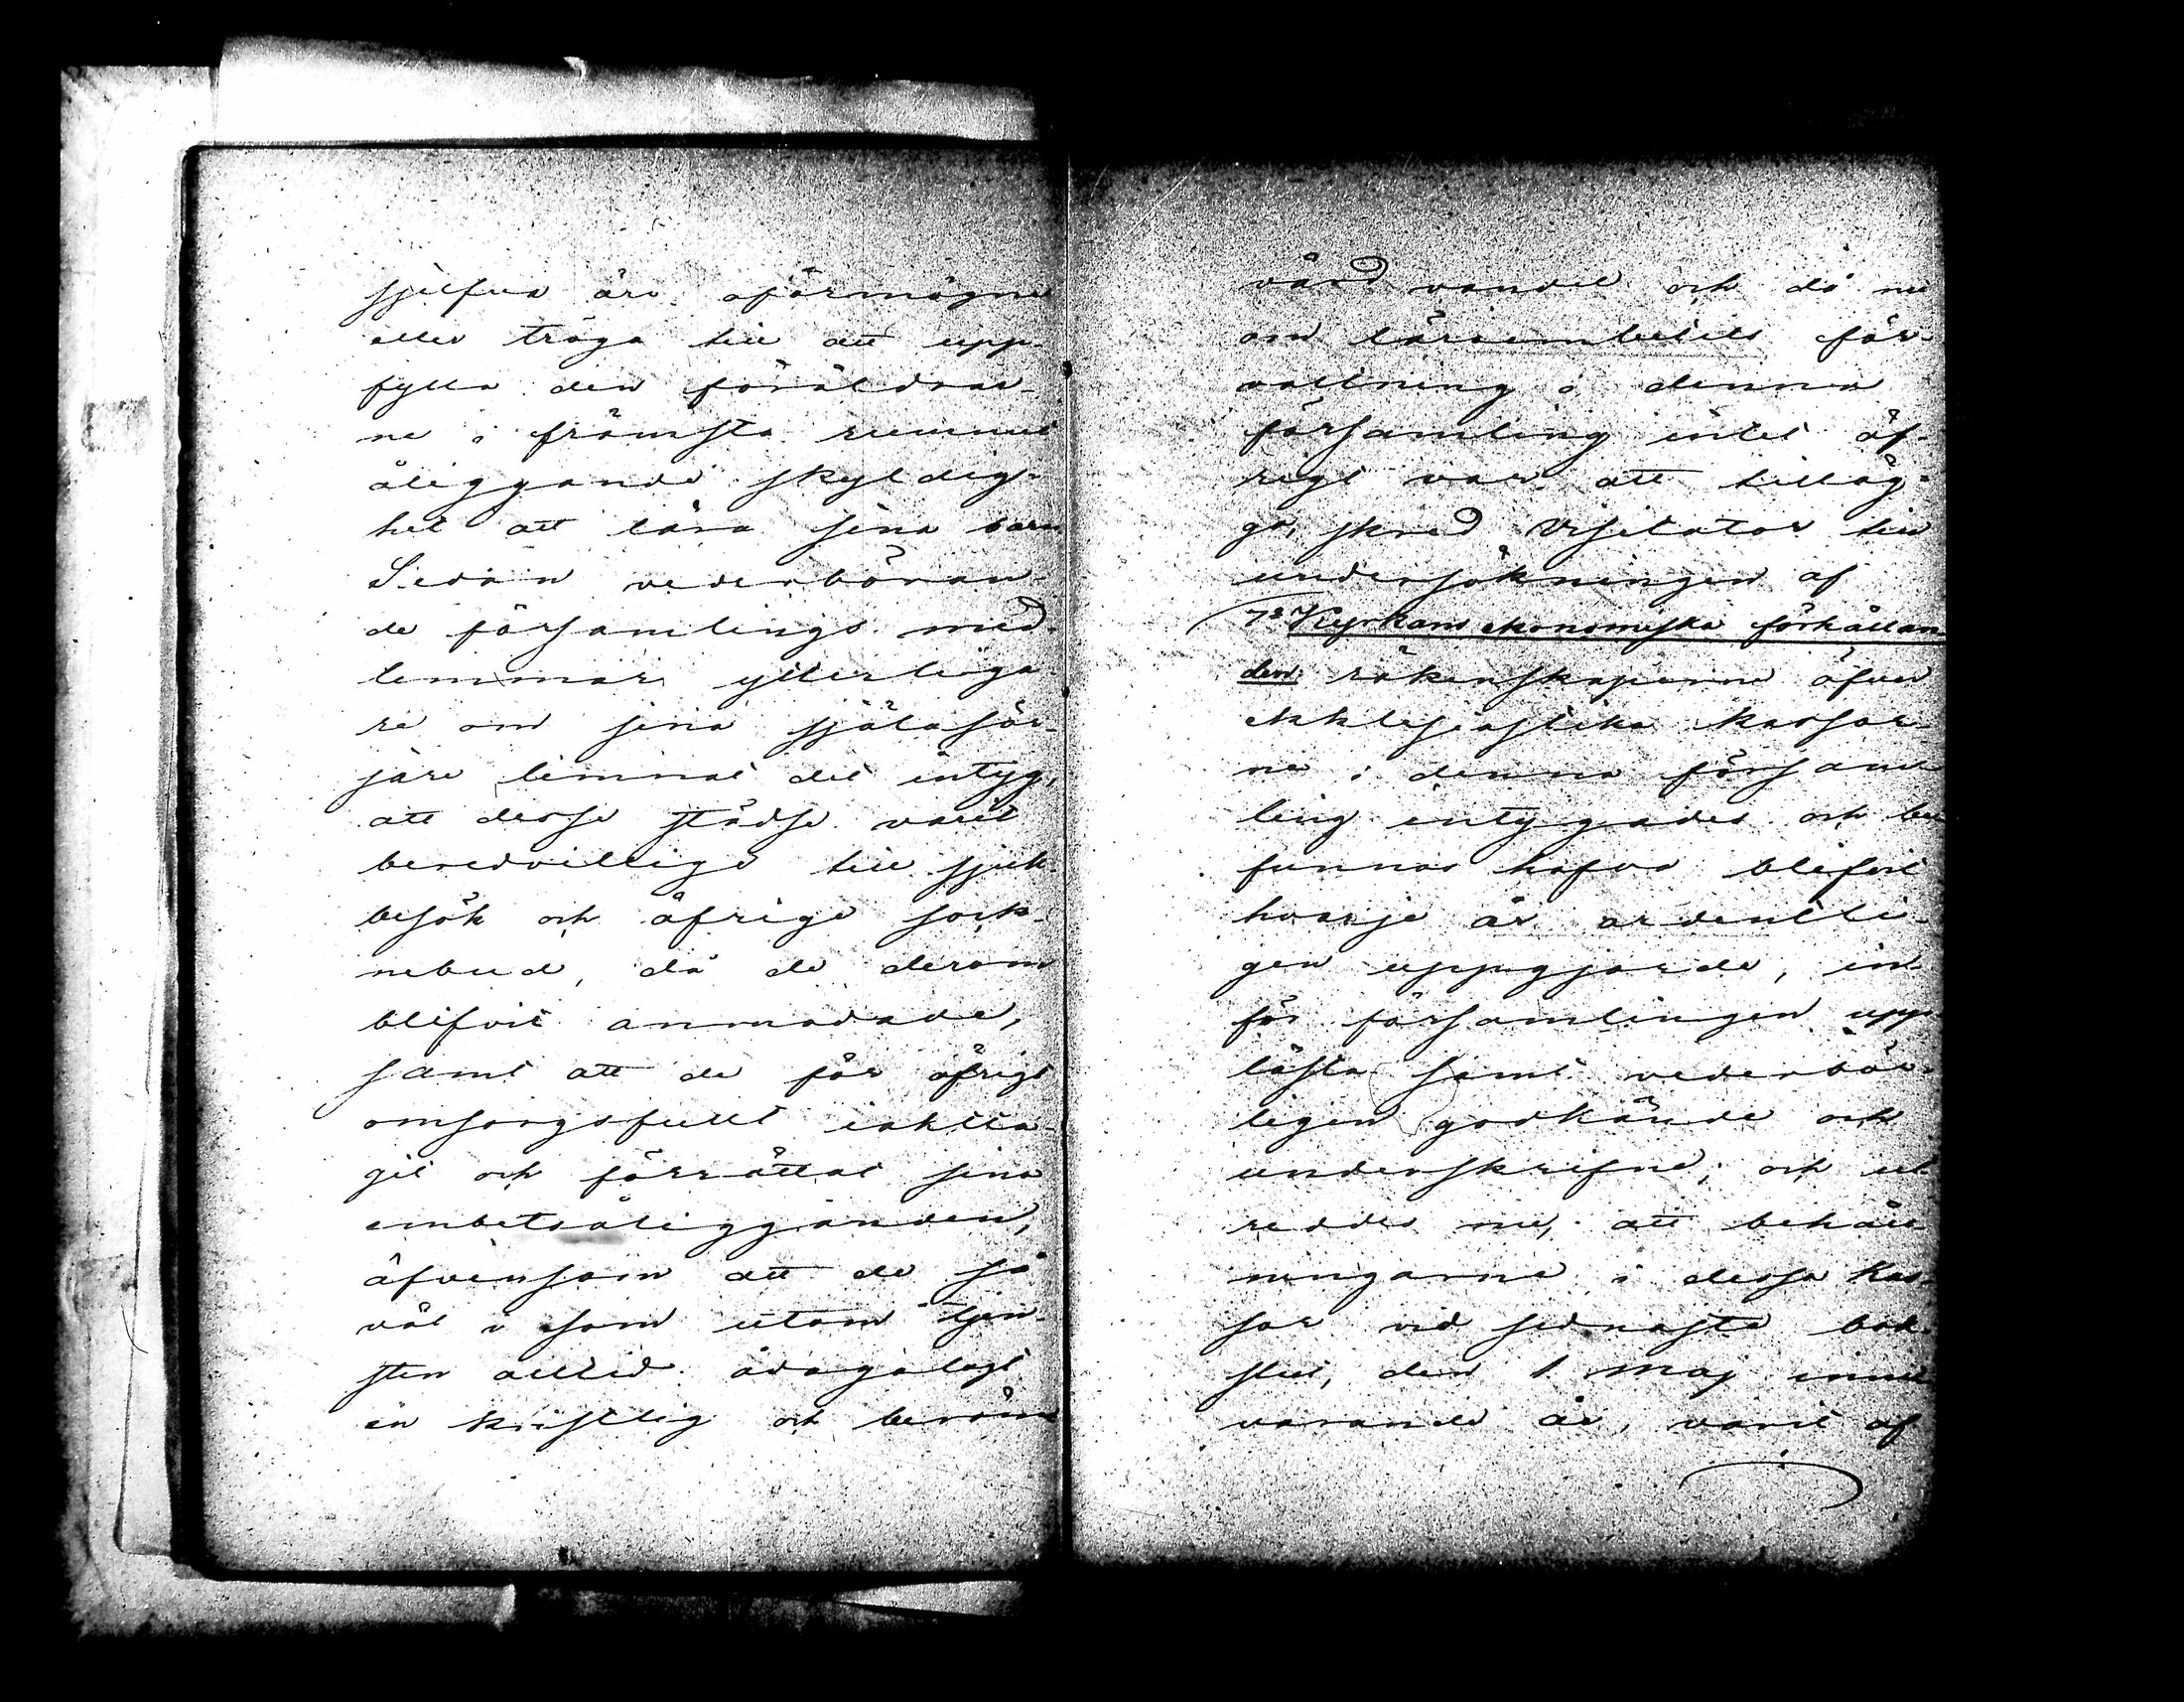 sjelfva äro oförmögna
eller tröga till att upp-
fylla den föräldrar-
ne i främsta rummet
åliggande skyldig-
het att lära sina barn
Sedan vederböran-
de församlings med-
lemmar ytterliga-
re om sina själasör-
jare lemnat det intyg,
att desse städse varit
beredvillige till sjuk-
besök och öfrige sock-
nebud, då de derom
blifvit anmodade,
samt att de för öfrigt
omsorgsfullt iaktta-
git och förrättat sina
embetsåligganden,
äfvensom att de så
väl i som utom tjen-
sten alltid ådagalagt
en kristlig och beröm
värd vandel och då nu
om läroembetets för-
valtning i denna
församling intet öf-
rigt var att tilläg-
ga, skred Visitator till
undersökningen af
7o Kyrkans ekonomiska förhållan
den: räkenskaperne öfver
ekklesiastika kassor-
ne i denna försam
ling intygades och be
funnos hafva blifvit
hvarje år ordentli-
gen uppgjorde, in-
för församlingen upp
lästa samt vederbör-
ligen godkände och
underskrifne; och ut
reddes nu, att behåll
ningarne i dessa kas-
sor vid sednaste bok-
slut, den 1 Maj inne
varande år, varit af